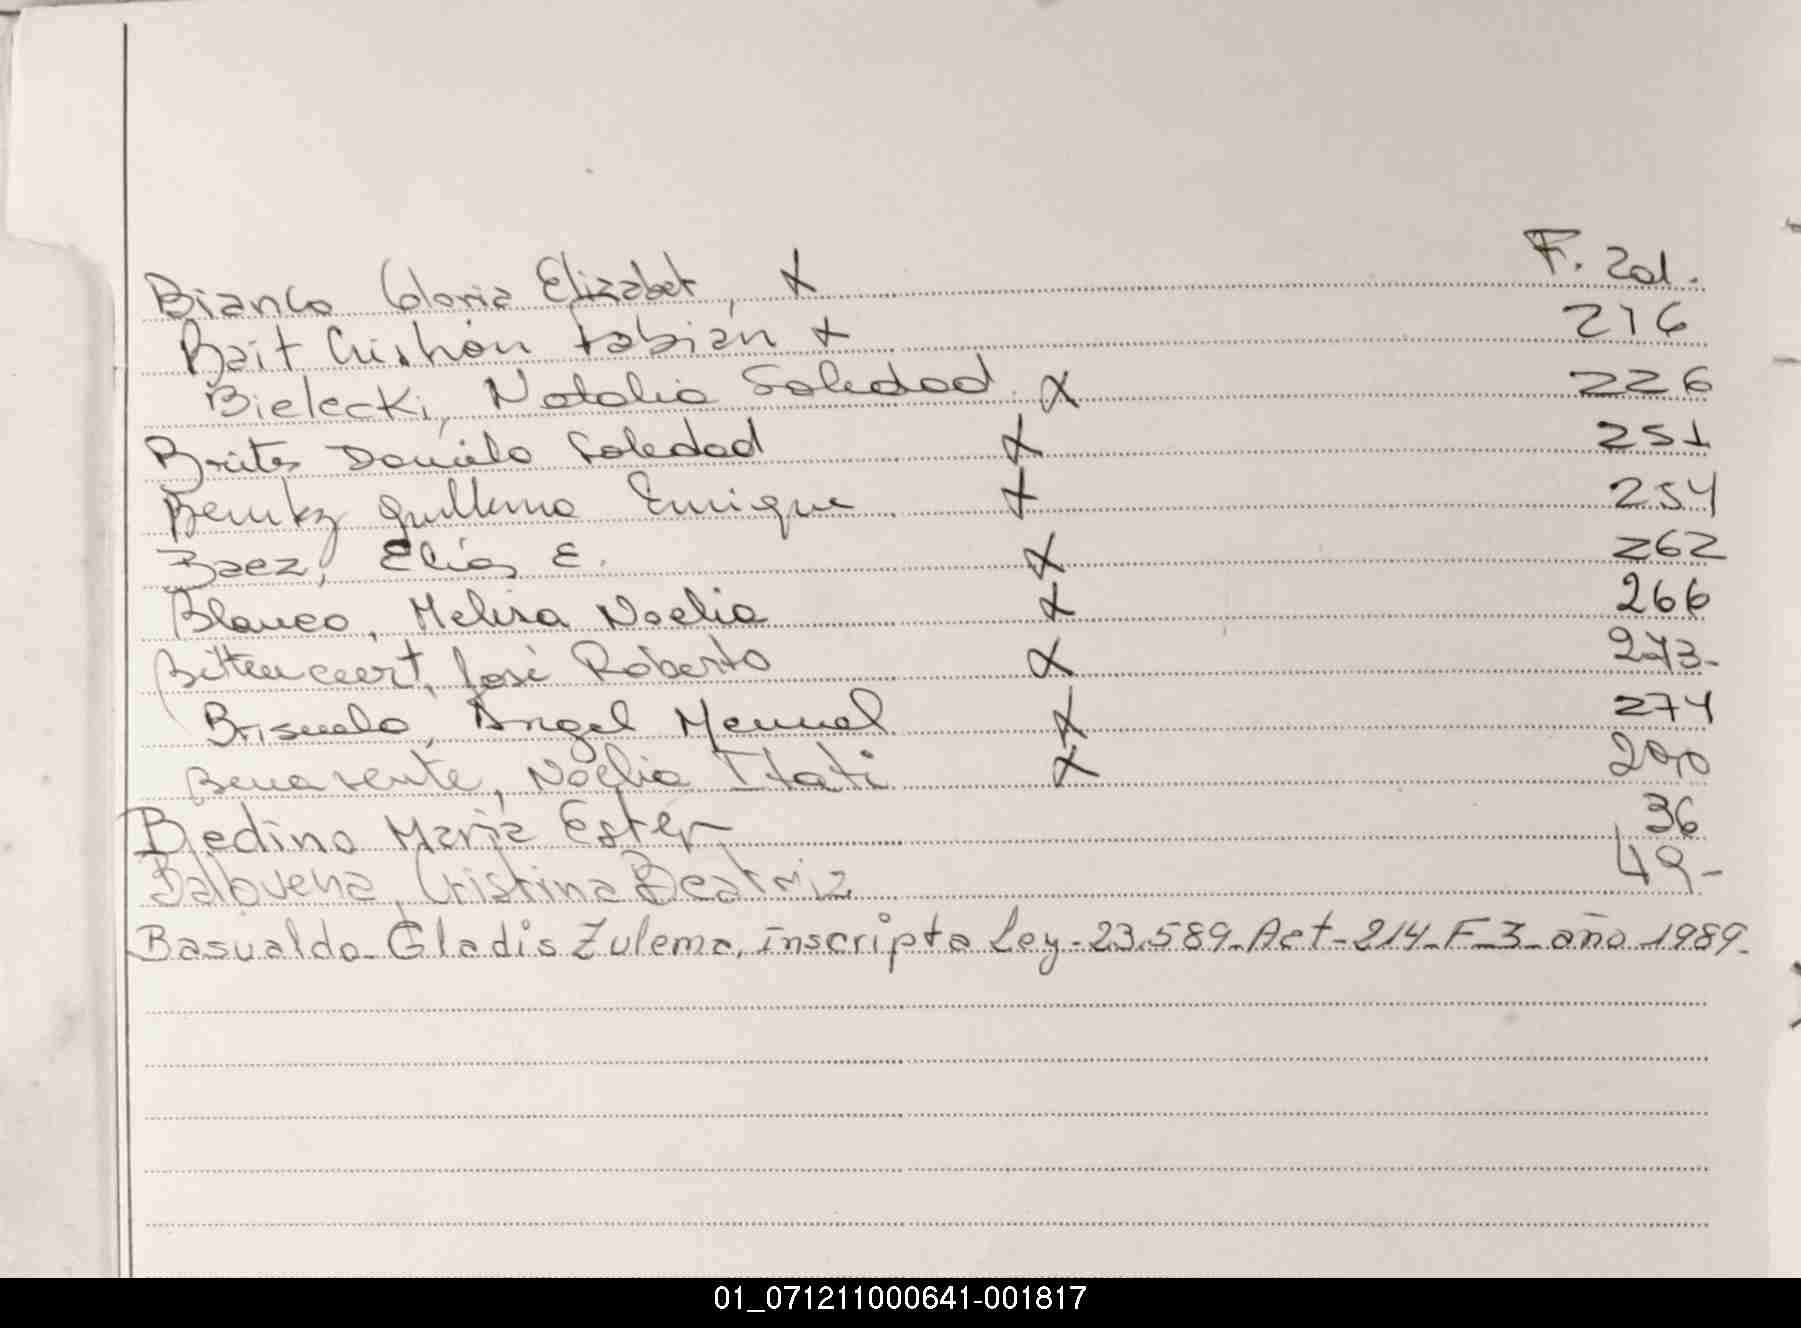 Bianco Gloria Elizabet, X F. 201.
Bait Cristian Fabian X 216
Bielecki, Natalia Soledad. X 226
Brites Daniela Soledad X 251
Benitez Guillermo Enrique X 254
Baez, Elias E. X 262
Blanco, Melisa Noelia X 266
Bittencourt, José Roberto X 273-
Brisuela, Angel Manuel X 274
Benavente, Noelia Itati X
Bedino Maria Ester 36
Balbuena, Cristina Beatriz 49-
Basualdo-Gladis Zulema, inscripta Ley-23.589-Act-214-F-3-año 1989-
01_071211000641-001817